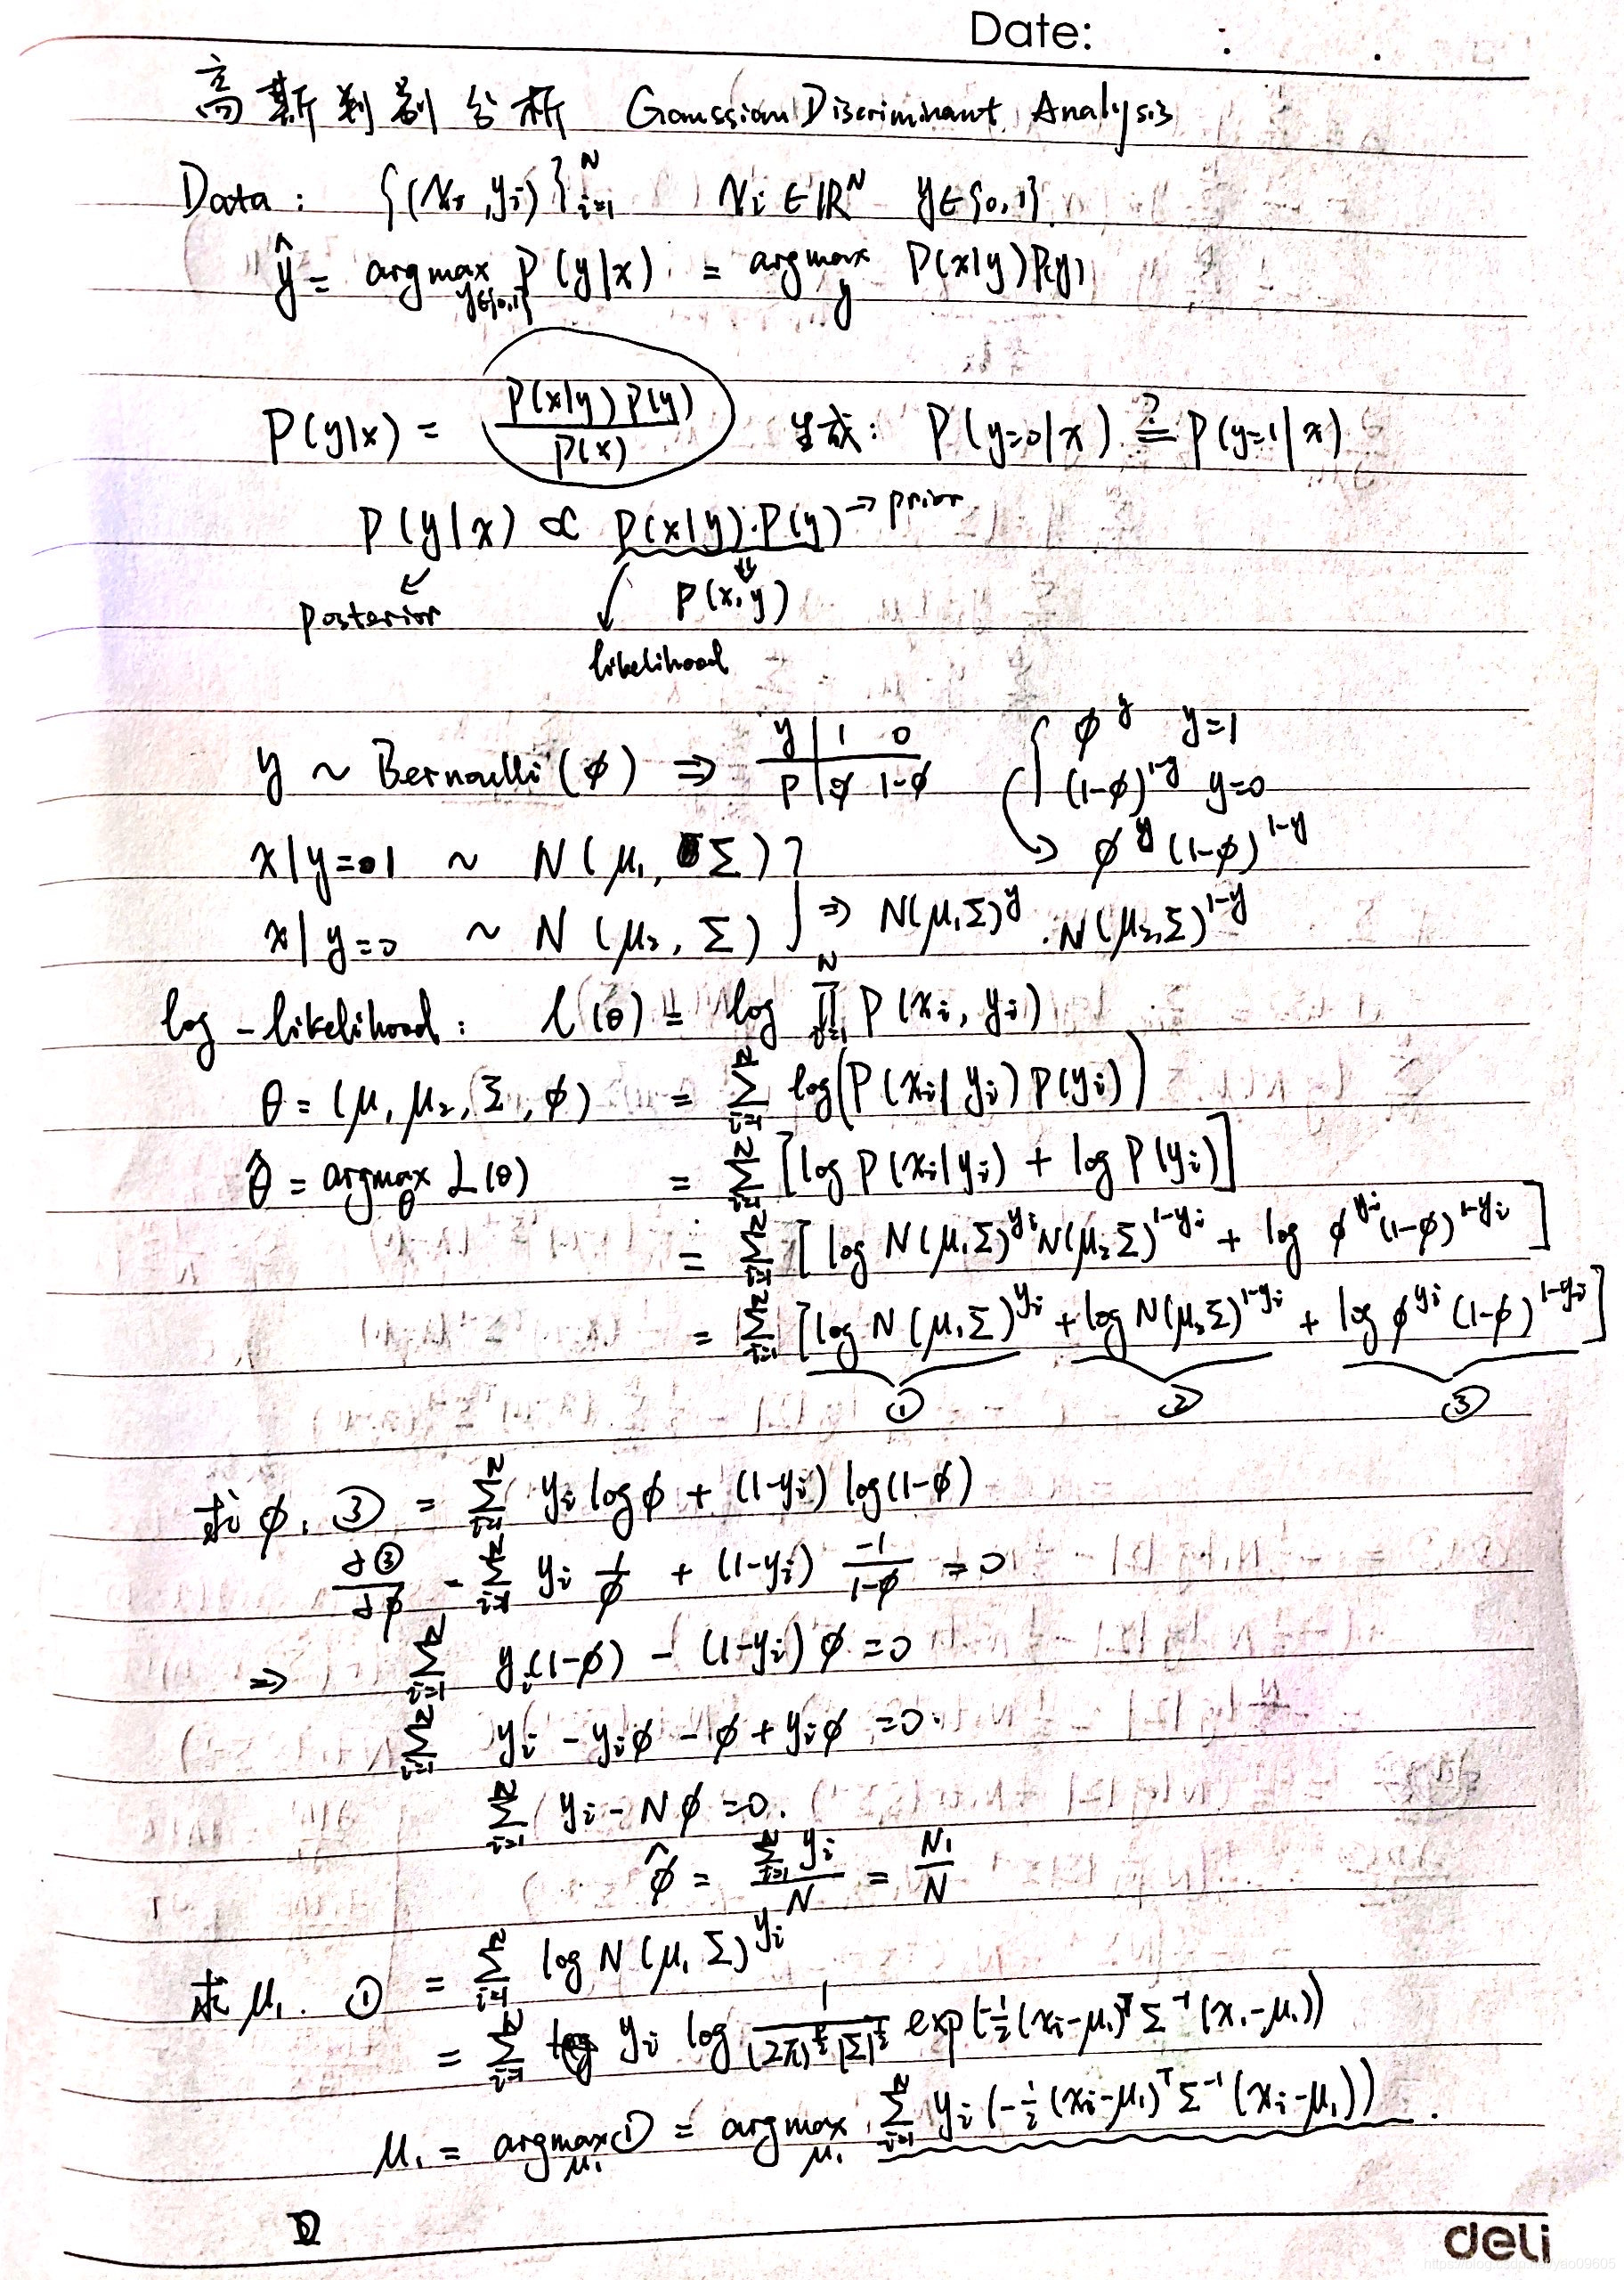 Date: . .
高斯判别分析 Gaussian Discriminant Analysis
Data: {(x_i, y_i)}_{i=1}^N x_i ∈ ℝ^N y ∈ {0,1}
ŷ = argmax_{y∈{0,1}} P(y|x) = argmax_y P(x|y)P(y)
P(y|x) = P(x|y)P(y) / P(x) 生成: P(y=0|x) ≟ P(y=1|x)
P(y|x) ∝ P(x|y)·P(y) → prior
posterior P(x,y)
likelihood
y ~ Bernoulli(φ) ⇒ y | 1 0 { φ^y y=1
P | φ 1-φ (1-φ)^{1-y} y=0
x|y=1 ~ N(μ₁, Σ) → φ^y (1-φ)^{1-y}
x|y=0 ~ N(μ₂, Σ) } ⇒ N(μ₁Σ)^y · N(μ₂,Σ)^{1-y}
log-likelihood: l(θ) = log ∏_{i=1}^N P(x_i, y_i)
θ = (μ₁ μ₂, Σ, φ) = Σ_{i=1}^N log(P(x_i|y_i)P(y_i))
θ̂ = argmax_θ L(θ) = Σ_{i=1}^N [log P(x_i|y_i) + log P(y_i)]
= Σ_{i=1}^N [log N(μ₁Σ)^{y_i} N(μ₂Σ)^{1-y_i} + log φ^{y_i}(1-φ)^{1-y_i}]
= Σ_{i=1}^N [log N(μ₁Σ)^{y_i} + log N(μ₂Σ)^{1-y_i} + log φ^{y_i}(1-φ)^{1-y_i}]
① ② ③
求φ. ③ = Σ_{i=1}^N y_i log φ + (1-y_i) log(1-φ)
∂③/∂φ = Σ_{i=1}^N y_i 1/φ + (1-y_i) -1/(1-φ) = 0
⇒ Σ_{i=1}^N y_i(1-φ) - (1-y_i)φ = 0
Σ_{i=1}^N y_i - y_iφ - φ + y_iφ = 0.
Σ_{i=1}^N y_i - Nφ = 0.
φ̂ = Σ_{i=1}^N y_i / N = N₁/N
求μ₁. ① = Σ_{i=1}^N log N(μ₁ Σ)^{y_i}
= Σ_{i=1}^N y_i log 1/((2π)^{p/2}|Σ|^{1/2}) exp(-½(x_i-μ₁)^T Σ^{-1}(x_i-μ₁))
μ₁ = argmax_{μ₁} ① = argmax_{μ₁} Σ_{i=1}^N y_i(-½(x_i-μ₁)^T Σ^{-1}(x_i-μ₁)).
deli